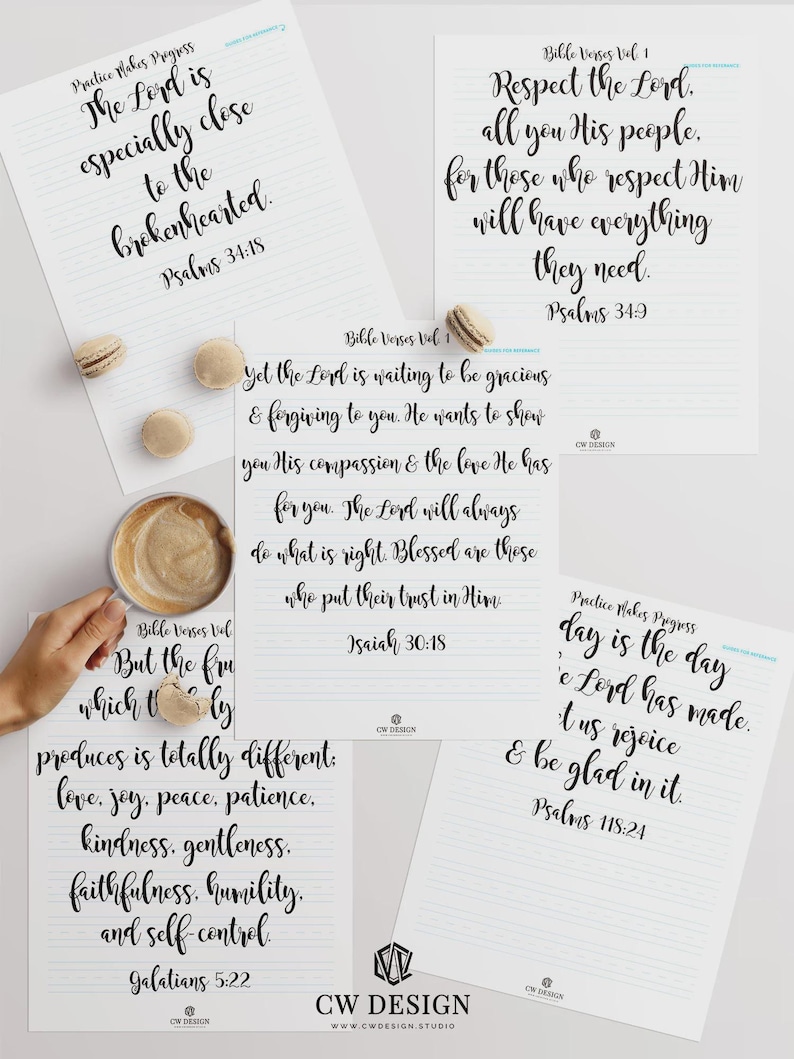 Practice Makes Progress
GUIDES FOR REFERANCE
The Lord is
especially close
to the
brokenhearted.
Psalms 34:18
Bible Verses Vol. 1
GUIDES FOR REFERANCE
Respect the Lord,
all you His people,
for those who respect Him
will have everything
they need.
Psalms 34:9
CW DESIGN
Bible Verses Vol. 1
GUIDES FOR REFERANCE
Yet the Lord is waiting to be gracious
& forgiving to you. He wants to show
you His compassion & the love He has
for you. The Lord will always
do what is right. Blessed are those
who put their trust in Him.
Isaiah 30:18
CW DESIGN
Bible Verses Vol.
But the
which
produces is totally different;
love, joy, peace, patience,
kindness, gentleness,
faithfulness, humility,
and self-control.
Galatians 5:22
CW DESIGN
Practice Makes Progress
GUIDES FOR REFERANCE
day is the day
Lord has made.
us rejoice
& be glad in it.
Psalms 118:24
CW DESIGN
CW DESIGN
WWW.CWDESIGN.STUDIO